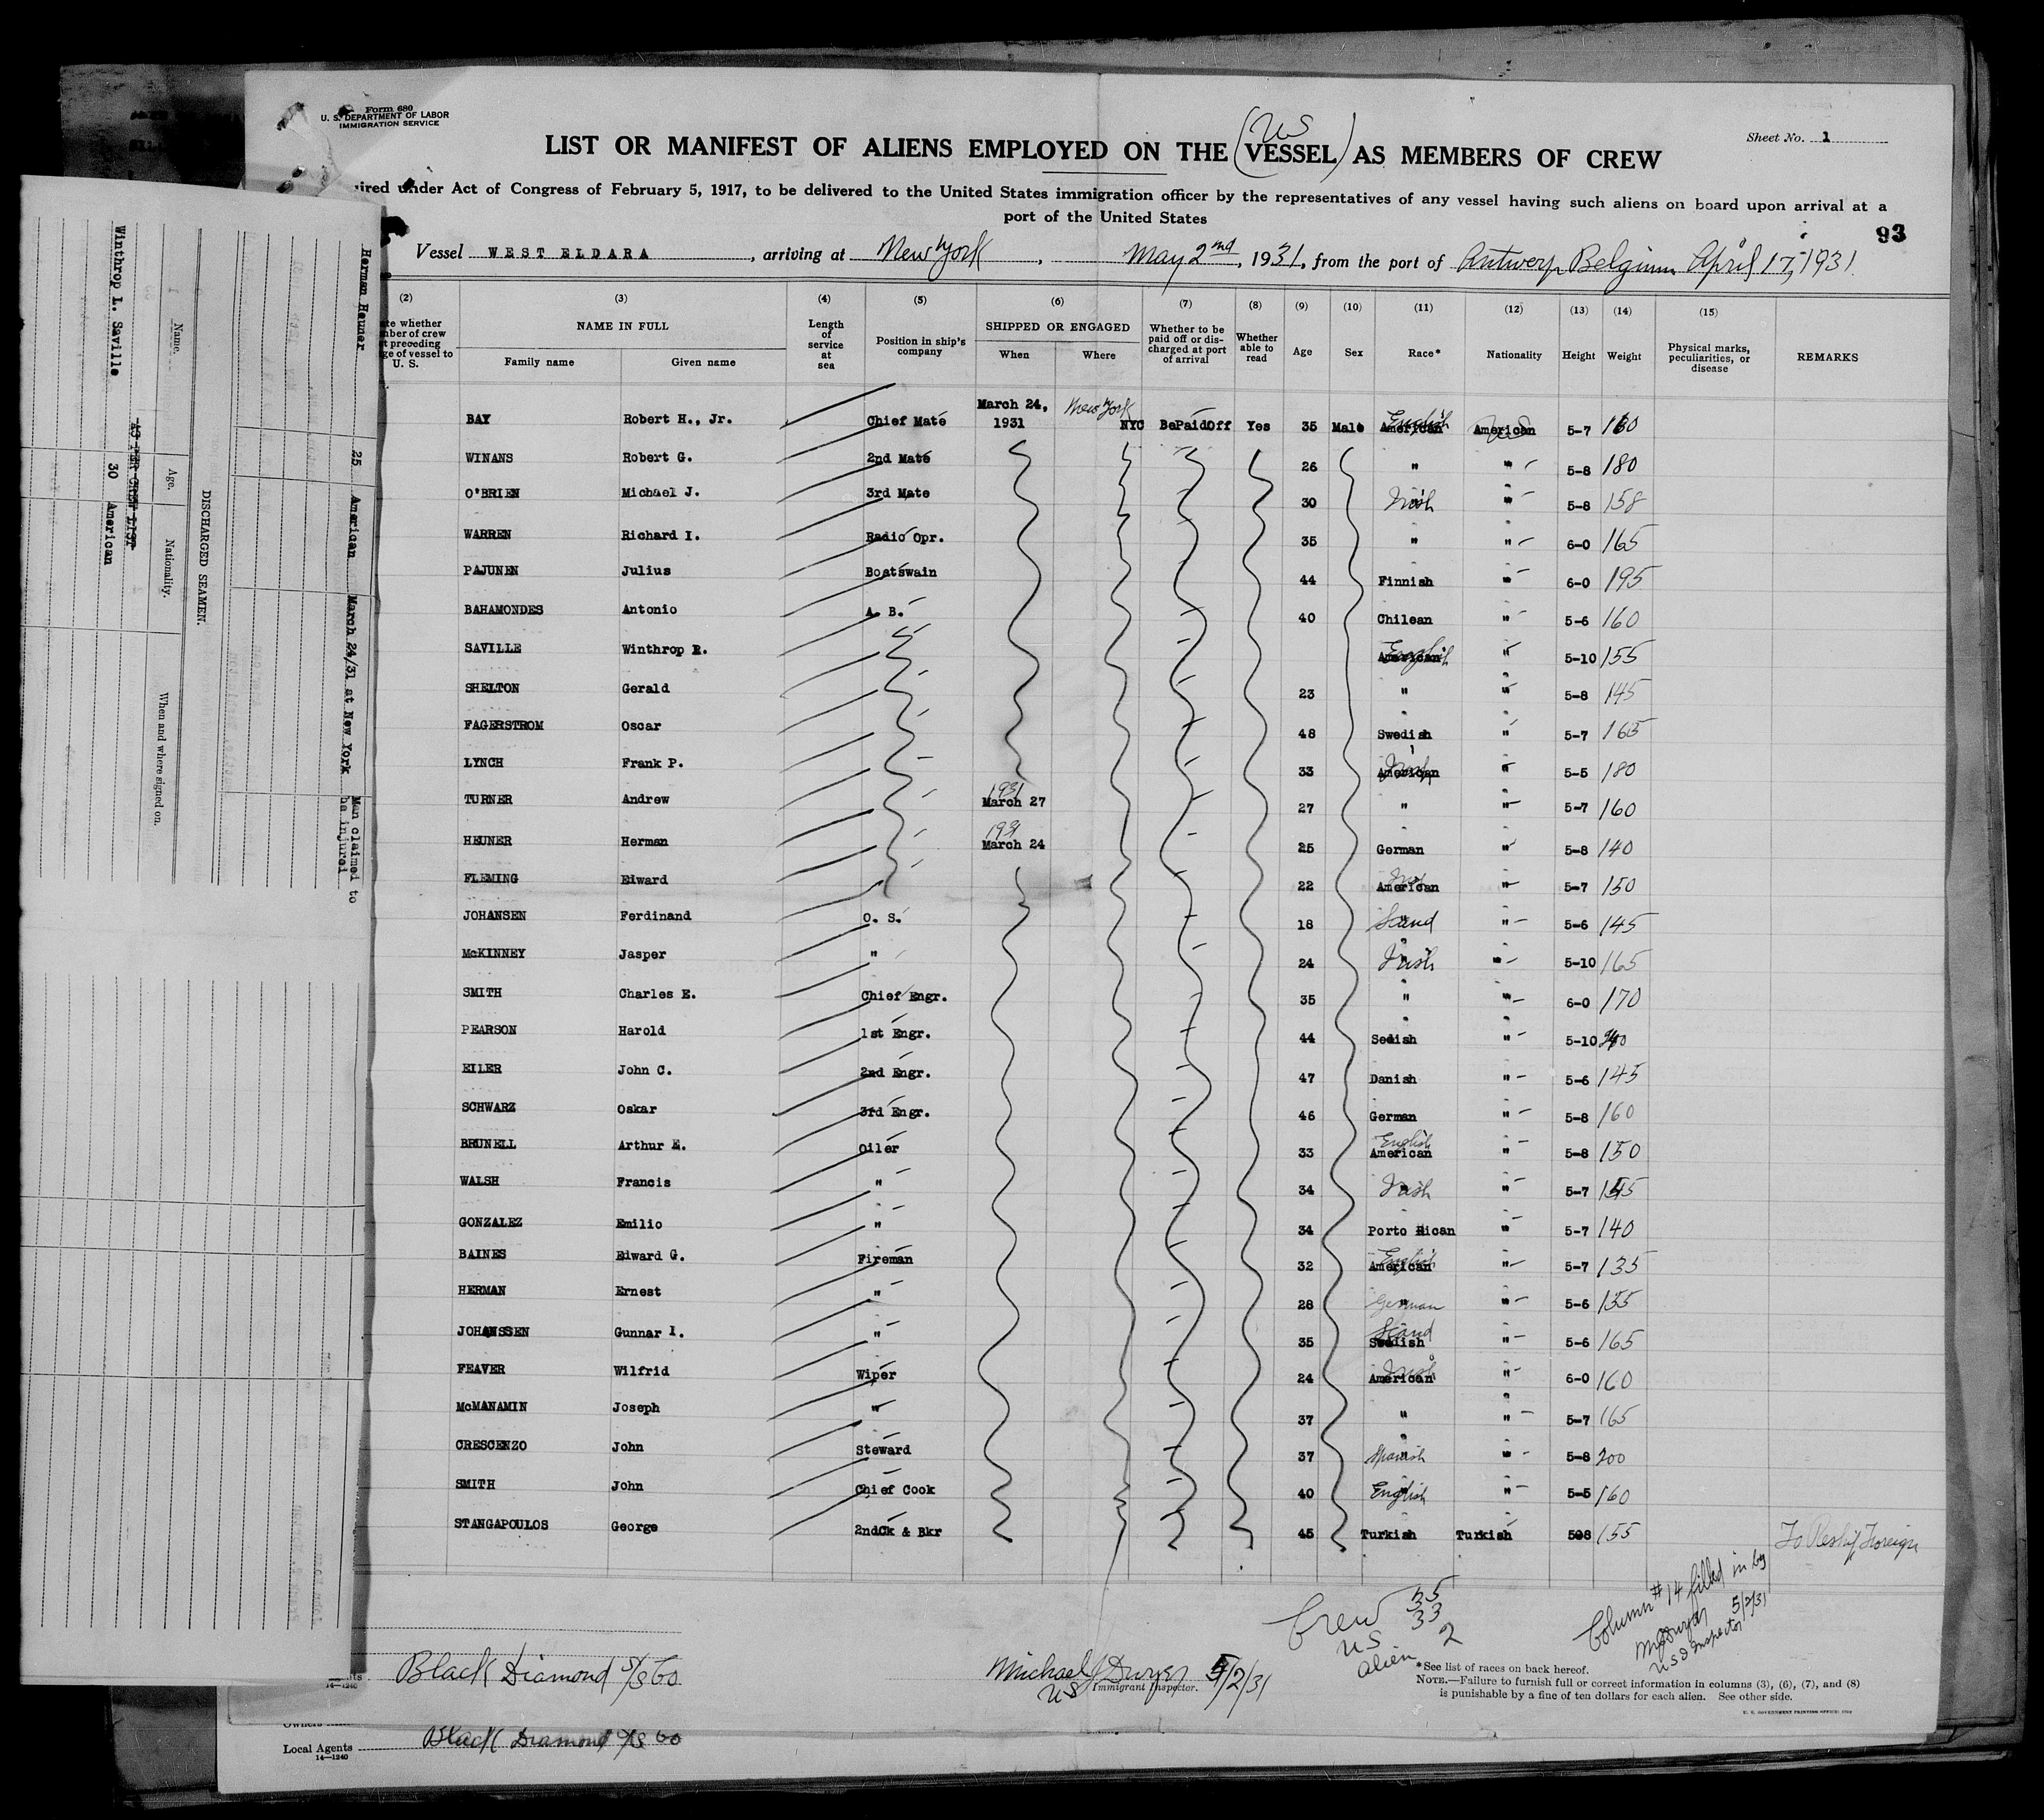 Form 680
U. S. DEPARTMENT OF LABOR
IMMIGRATION SERVICE
US
Sheet No. 1
LIST OR MANIFEST OF ALIENS EMPLOYED ON THE VESSEL AS MEMBERS OF CREW
ired under Act of Congress of February 5, 1917, to be delivered to the United States immigration officer by the representatives of any vessel having such aliens on board upon arrival at a
port of the United States
93
Vessel WEST ELDARA, arriving at New York, May 2nd, 1931, from the port of Antwerp Belgium April 17, 1931
(2) (3) (4) (5) (6) (7) (8) (9) (10) (11) (12) (13) (14) (15)
te whether
mber of crew
t preceding
ge of vessel to
U. S.
NAME IN FULL
Family name Given name
Length
of
service
at
sea
Position in ship's
company
SHIPPED OR ENGAGED
When Where
Whether to be
paid off or dis-
charged at port
of arrival
Whether
able to
read
Age
Sex
Race*
Nationality
Height
Weight
Physical marks,
peculiarities, or
disease
REMARKS
BAY Robert H., Jr. Chief Mate March 24, 1931 New York NYC BePaidOff Yes 35 Male American English American US 5-7 160
WINANS Robert G. 2nd Mate 26 " " 5-8 180
O'BRIEN Michael J. 3rd Mate 30 " Irish " 5-8 158
WARREN Richard I. Radio Opr. 35 " " 6-0 165
PAJUNEN Julius Boatswain 44 Finnish " 6-0 195
BAHAMONDES Antonio A. B. 40 Chilean " 5-6 160
SAVILLE Winthrop R. American English " 5-10 155
SHELTON Gerald 23 " " 5-8 145
FAGERSTROM Oscar 48 Swedish " 5-7 165
LYNCH Frank P. 33 American Irish " 5-5 180
TURNER Andrew 1931 March 27 27 " " 5-7 160
HEUNER Herman 1931 March 24 25 German " 5-8 140
FLEMING Edward 22 American " 5-7 150
JOHANSEN Ferdinand O. S. 18 " Scand " 5-6 145
McKINNEY Jasper " 24 " Irish " 5-10 165
SMITH Charles E. Chief Engr. 35 " " 6-0 170
PEARSON Harold 1st Engr. 44 Sedish " 5-10
EILER John C. 2nd Engr. 47 Danish " 5-6 145
SCHWARZ Oskar 3rd Engr. 46 German " 5-8 160
BRUNELL Arthur E. Oiler 33 English American " 5-8 150
WALSH Francis " 34 " Irish " 5-7
GONZALEZ Emilio " 34 Porto Rican " 5-7 140
BAINES Edward G. Fireman 32 English American " 5-7 135
HERMAN Ernest " 28 " German " 5-6 155
JOHANSSEN Gunnar I. " 35 Scand Swedish " 5-6 165
FEAVER Wilfrid Wiper 24 Irish American " 6-0 160
McMANAMIN Joseph " 37 " " 5-7 165
CRESCENZO John Steward 37 " Spanish " 5-8 200
SMITH John Chief Cook 40 " English " 5-5 160
STANGAPOULOS George 2ndCk & Bkr 45 Turkish Turkish 508 155 To Reship Foreign
Crew 35
US 33
Alien 2
Column #14 filled in by
MJDwyer 5/2/31
US Inspector
Black Diamond S/S Co
Michael J Dwyer 5/2/31
US Immigrant Inspector.
*See list of races on back hereof.
NOTE.—Failure to furnish full or correct information in columns (3), (6), (7), and (8)
is punishable by a fine of ten dollars for each alien. See other side.
U. S. GOVERNMENT PRINTING OFFICE
14—1240
Owners
Local Agents Black Diamond S/S Co
14—1240
Herman Heuner 25 American March 24/31 at New York Man claimed to be injured
DISCHARGED SEAMEN.
Name. Age. Nationality. When and where signed on.
AS PER CREW LIST
Winthrop L. Saville 30 American